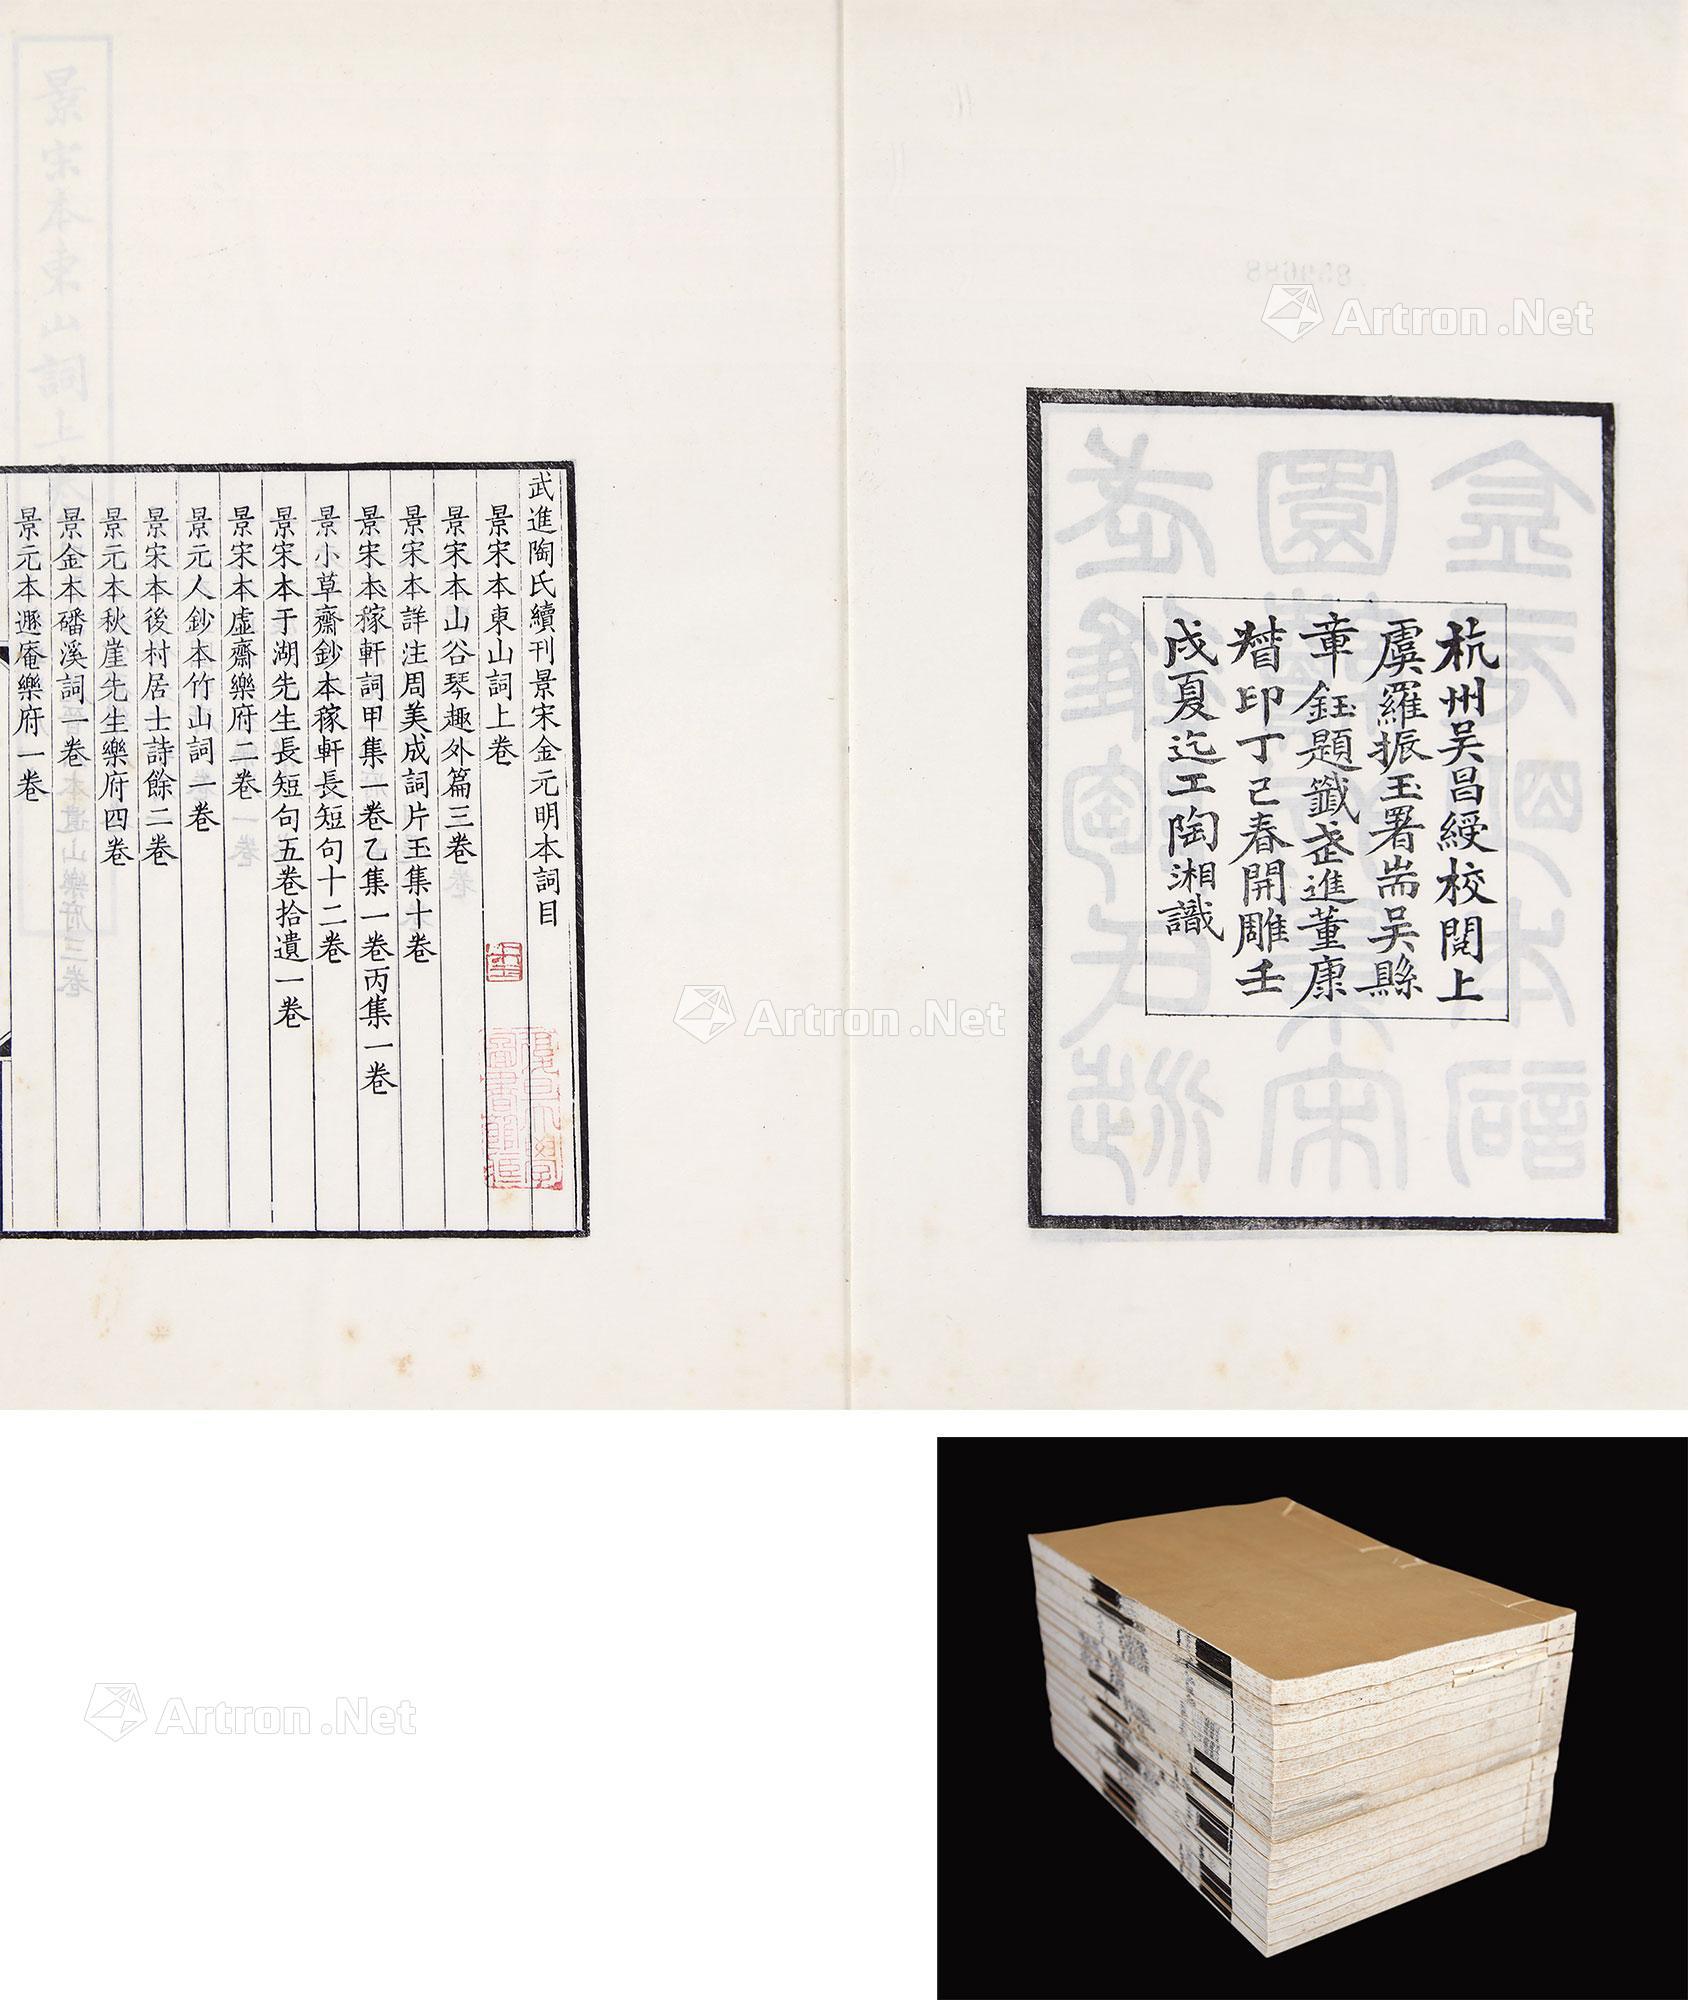 杭州吴昌綬校閱上
虞羅振玉署耑吴縣
章鈺題籤武進董康
督印丁己春開雕壬
戌夏迄工陶湘識
武進陶氏續刊景宋金元明本詞目
景宋本東山詞上卷
景宋本山谷琴趣外篇三卷
景宋本詳注周美成詞片玉集十卷
景宋本稼軒詞甲集一卷乙集一卷丙集一卷
景小草齋鈔本稼軒長短句十二卷
景宋本于湖先生長短句五卷拾遺一卷
景宋本虛齋樂府二卷
景元人鈔本竹山詞一卷
景宋本後村居士詩餘二卷
景元本秋崖先生樂府四卷
景金本磻溪詞一卷
景元本遯庵樂府一卷
景宋本東山詞上
本遺山樂府三卷
Artron.Net
Artron.Net
Artron.Net